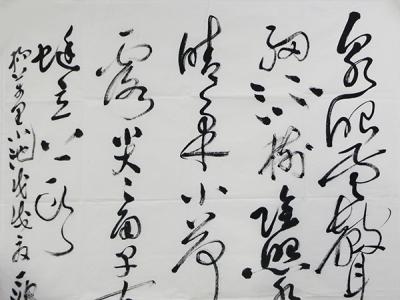 泉眼無聲
細流樹陰照水
晴柔小荷
露尖尖角早有
蜓立上頭
楊萬里小池戊戌